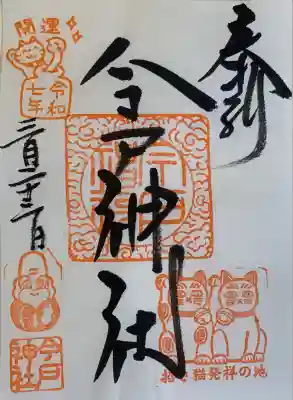 奉拝
今戸神社
開運
令和
七年
三月二十二日
招き猫発祥の地
今戸
神社